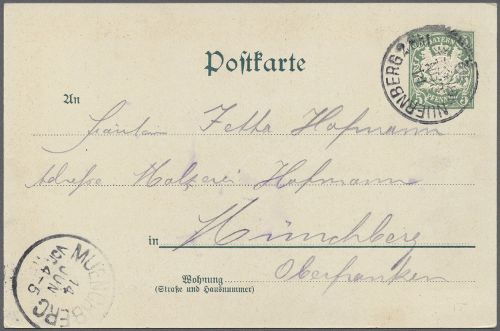 Postkarte
NUERNBERG 2 BHF
BAYERN
PFENNIG
An
Fräulein Jetta Hofmann
Adresse Malzerei Hofmann
in Münchberg
Oberfranken
Wohnung
(Straße und Hausnummer)
MUENCHBERG
14
JUN
VOR 4-5